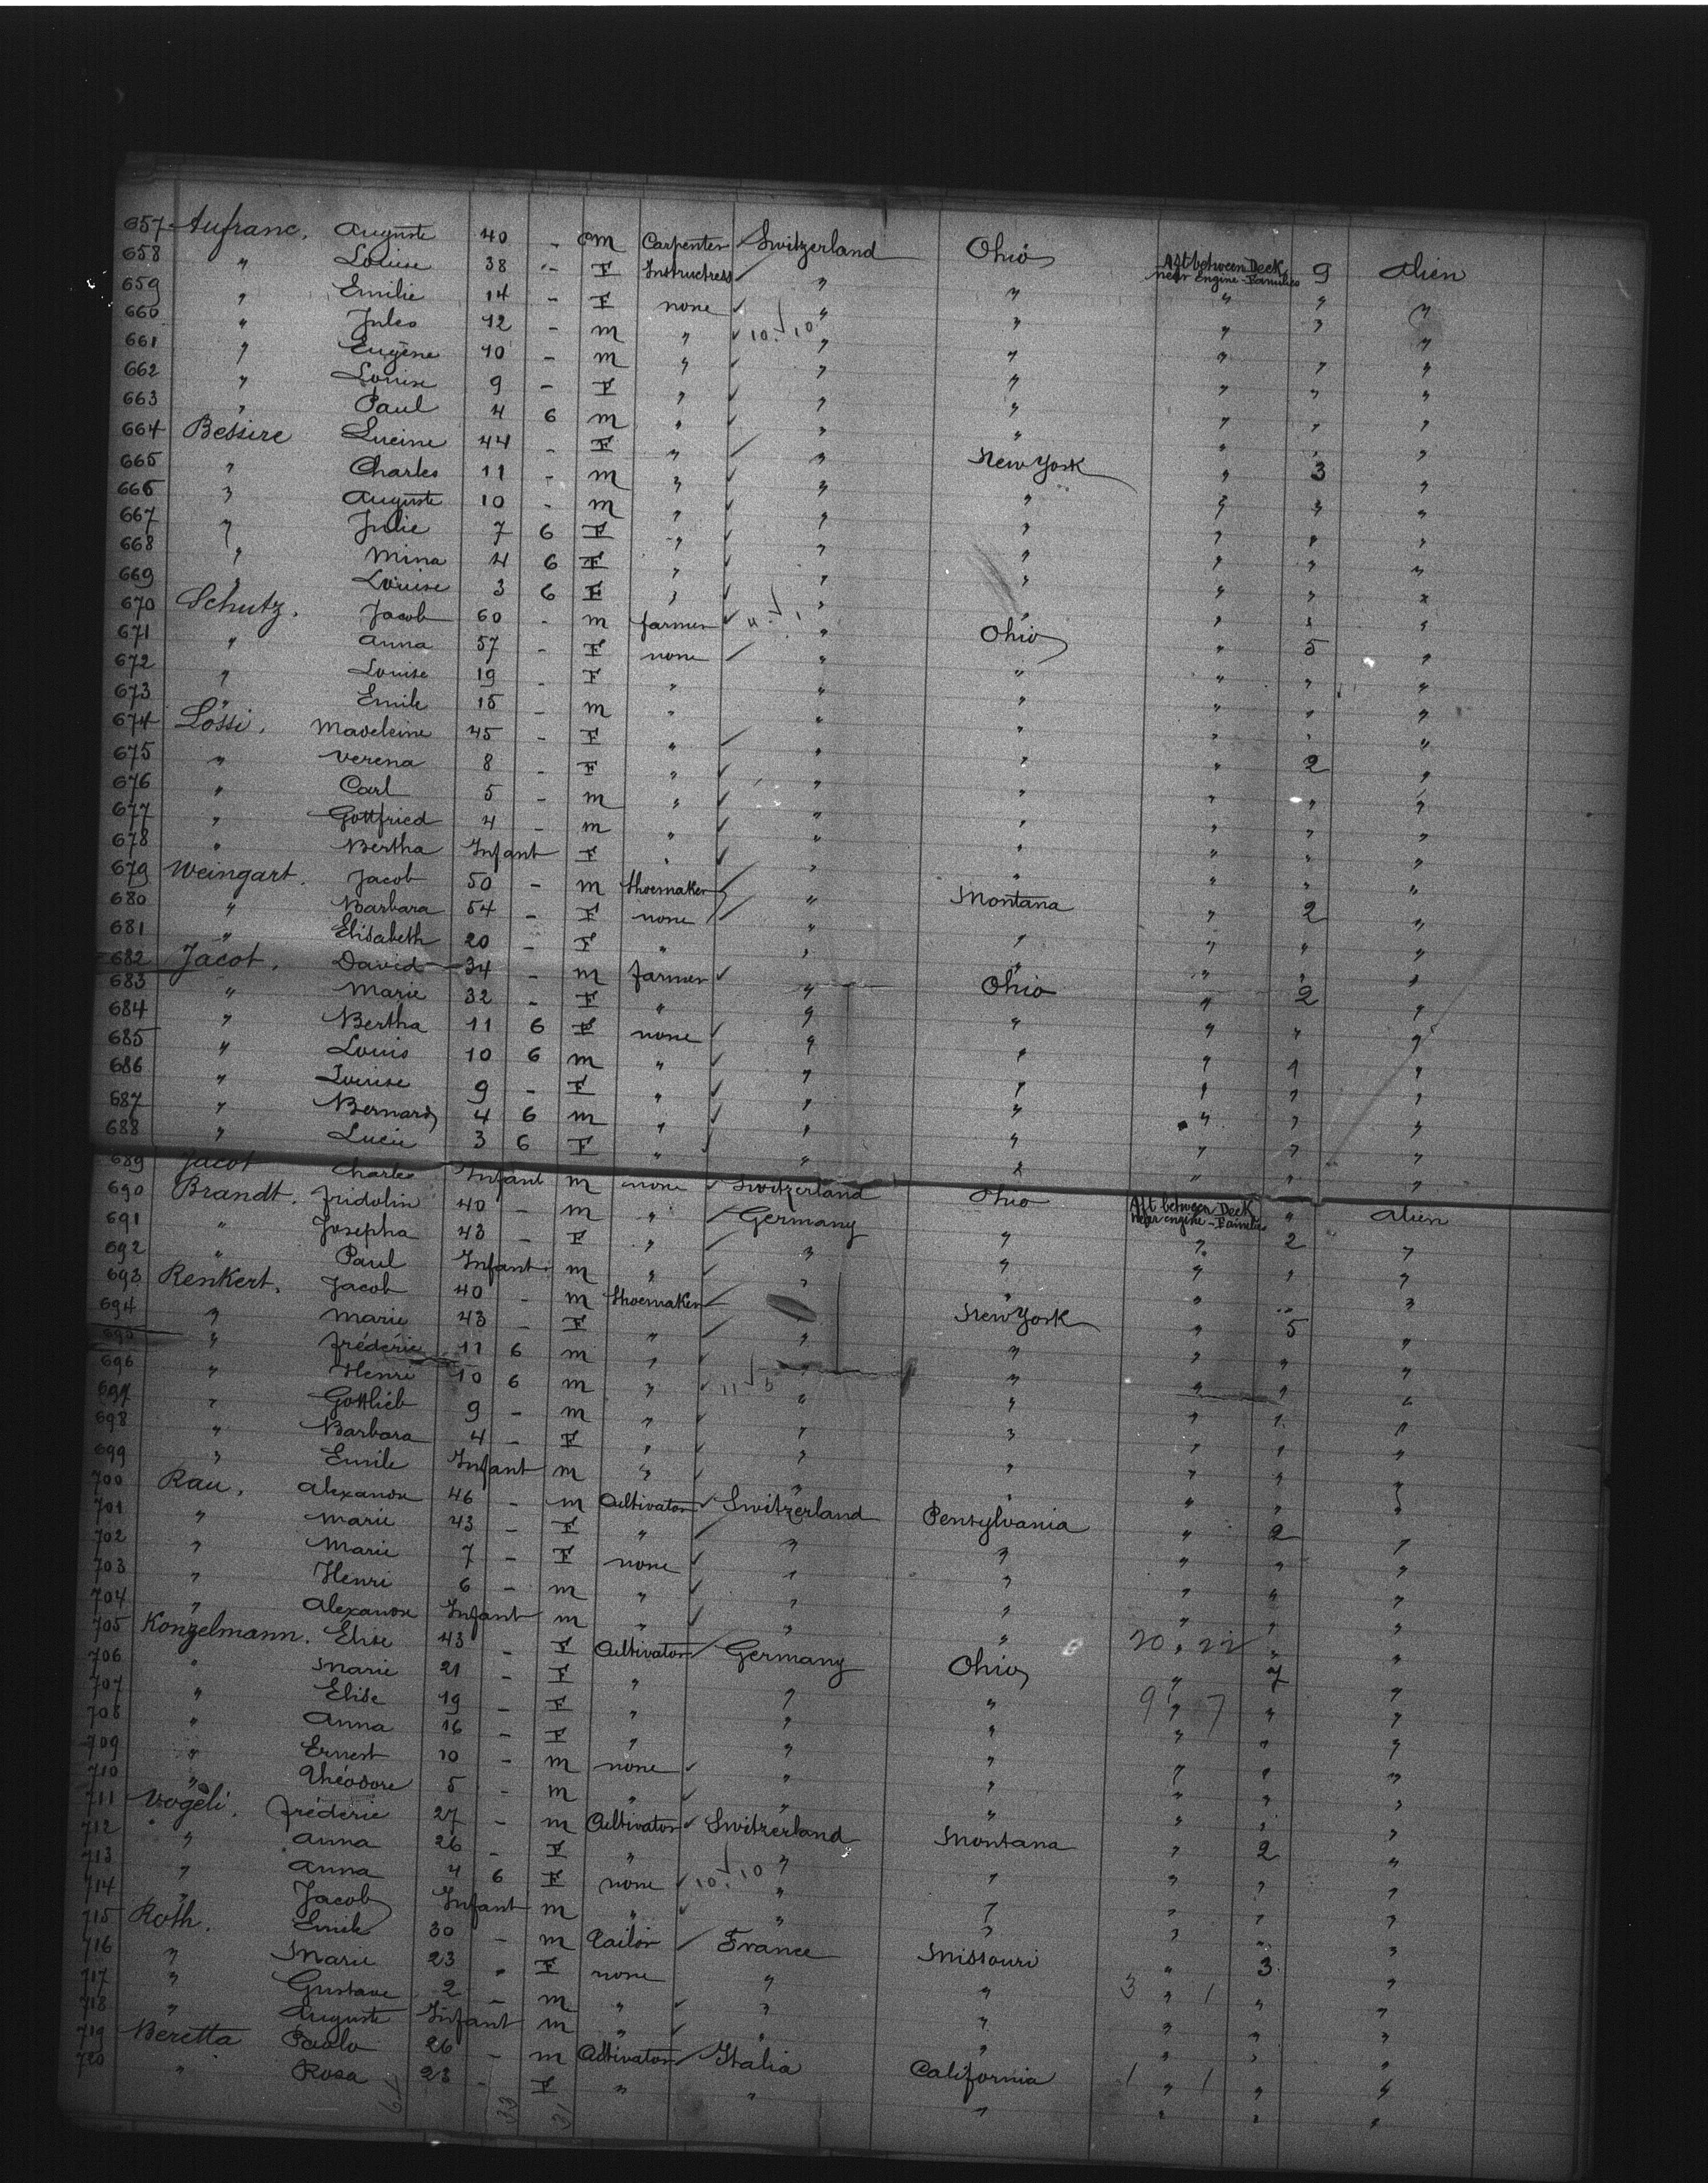 657 Aufranc. Auguste 40 - m Carpenter Switzerland Ohio Aft between Deck near Engine - Families 9 Alien
658 " Louise 38 - F Instructress " " " " "
659 " Emilie 14 - F none " " " " "
660 " Jules 12 - m " 10 10 " " " " "
661 " Eugène 10 - m " " " " " "
662 " Louise 9 - F " " " " " "
663 " Paul 4 6 m " " " " " "
664 Bessire Lucine 44 - F " " New York " 3 "
665 " Charles 11 - m " " " " " "
666 " Auguste 10 - m " " " " " "
667 " Julie 7 6 F " " " " " "
668 " Mina 4 6 F " " " " " "
669 " Louise 3 6 F " " " " " "
670 Schutz. Jacob 60 - m farmer " Ohio " 5 "
671 " Anna 57 - F none " " " " "
672 " Louise 19 - F " " " " " "
673 " Emile 15 - m " " " " " "
674 Lössi. Madeleine 45 - F " " " " 2 "
675 " Verena 8 - F " " " " " "
676 " Carl 5 - m " " " " " "
677 " Gottfried 4 - m " " " " " "
678 " Bertha Infant F " " " " " "
679 Weingart. Jacob 50 - m Shoemaker " Montana " 2 "
680 " Barbara 54 - F none " " " " "
681 " Elisabeth 20 - F " " " " " "
682 Jacot. David 34 - m farmer " Ohio " 2 "
683 " Marie 32 - F " " " " " "
684 " Bertha 11 6 F none " " " " "
685 " Louis 10 6 m " " " " " "
686 " Louise 9 - F " " " " " "
687 " Bernard 4 6 m " " " " " "
688 " Lucie 3 6 F " " " " " "
689 Jacot Charles Infant m none Switzerland Ohio Aft between Deck near engine - Families " Alien
690 Brandt. Fridolin 40 - m " Germany " " 2 "
691 " Josepha 43 - F " " " " " "
692 " Paul Infant m " " " " " "
693 Renkert. Jacob 40 - m Shoemaker " New York " 5 "
694 " Marie 43 - F " " " " " "
695 " Frédéric 11 6 m " " " " " "
696 " Henri 10 6 m " 11 5 " " " " "
697 " Gottlieb 9 - m " " " " " "
698 " Barbara 4 - F " " " " " "
699 " Emile Infant m " " " " " "
700 Rau. Alexandre 46 - m Cultivator Switzerland Pensylvania " 2 "
701 " Marie 43 - F " " " " " "
702 " Marie 7 - F none " " " " "
703 " Henri 6 - m " " " " " "
704 " Alexandre Infant m " " " " " "
705 Konzelmann. Elise 43 - F Cultivator Germany Ohio 20 22 " 7 "
706 " Marie 21 - F " " " 9 7 " " "
707 " Elise 19 - F " " " " " "
708 " Anna 16 - F " " " " " "
709 " Ernest 10 - m none " " " " "
710 " Théodore 5 - m " " " " " "
711 Vögeli. Frédéric 27 - m Cultivator Switzerland Montana " 2 "
712 " Anna 26 - F " " " " " "
713 " Anna 4 6 F none 10 10 " " " " "
714 " Jacob Infant m " " " " " "
715 Roth. Emile 30 - m Tailor France Missouri " 3 "
716 " Marie 23 " F none " " 3 " 1 " "
717 " Gustave 2 - m " " " " " "
718 " Auguste Infant m " " " " " "
719 Beretta Paolo 26 - m Cultivator Italia California 1 " 1 " "
720 " Rosa 23 - F " " " " " "
33 31